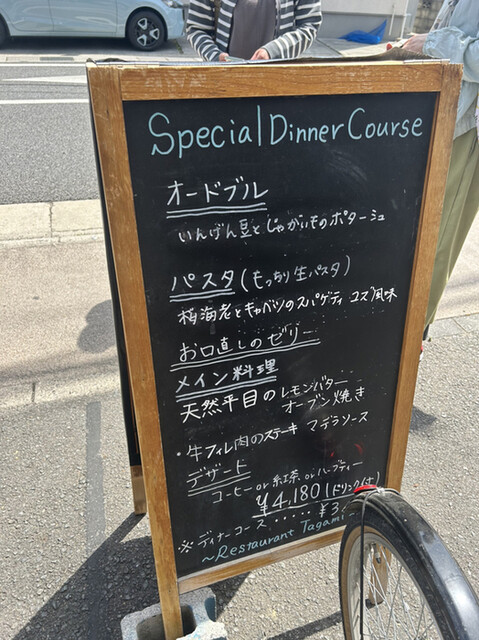 Special Dinner Course
オードブル
いんげん豆とじゃがいものポタージュ
パスタ(もっちり生パスタ)
桜海老とキャベツのスパゲティ ユズ風味
お口直しのゼリー
メイン料理
天然平目のレモンバター
オーブン焼き
・牛フィレ肉のステーキ マデラソース
デザート
コーヒー or 紅茶 or ハーブティー
¥4,180(ドリンク付
※ディナーコース ・・・・・ ¥3,
~Restaurant Tagami